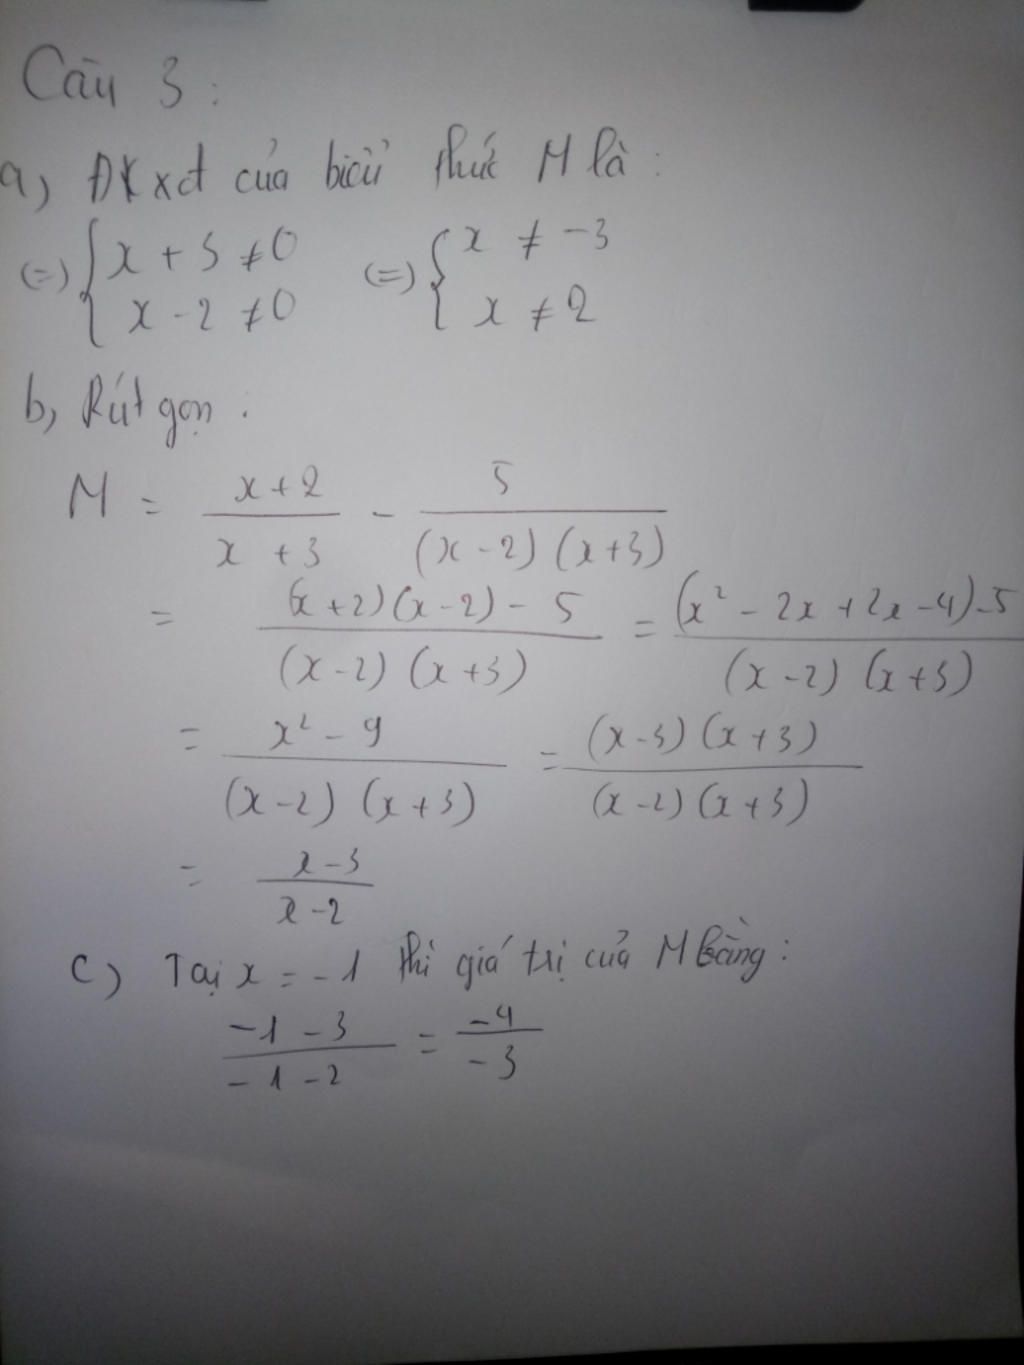 Câu 3 :
a) ĐKxđ của biểu thức M là :
(=) { x + 3 ≠ 0 (=) { x ≠ -3
x - 2 ≠ 0 x ≠ 2
b, Rút gọn :
M = (x+2)/(x+3) - 5/((x-2)(x+3))
= ((x+2)(x-2) - 5)/((x-2)(x+3)) = ((x² - 2x + 2x - 4) - 5)/((x-2)(x+3))
= (x² - 9)/((x-2)(x+3)) = ((x-3)(x+3))/((x-2)(x+3))
= (x-3)/(x-2)
c) Tại x = -1 thì giá trị của M bằng :
(-1-3)/(-1-2) = (-4)/(-3)